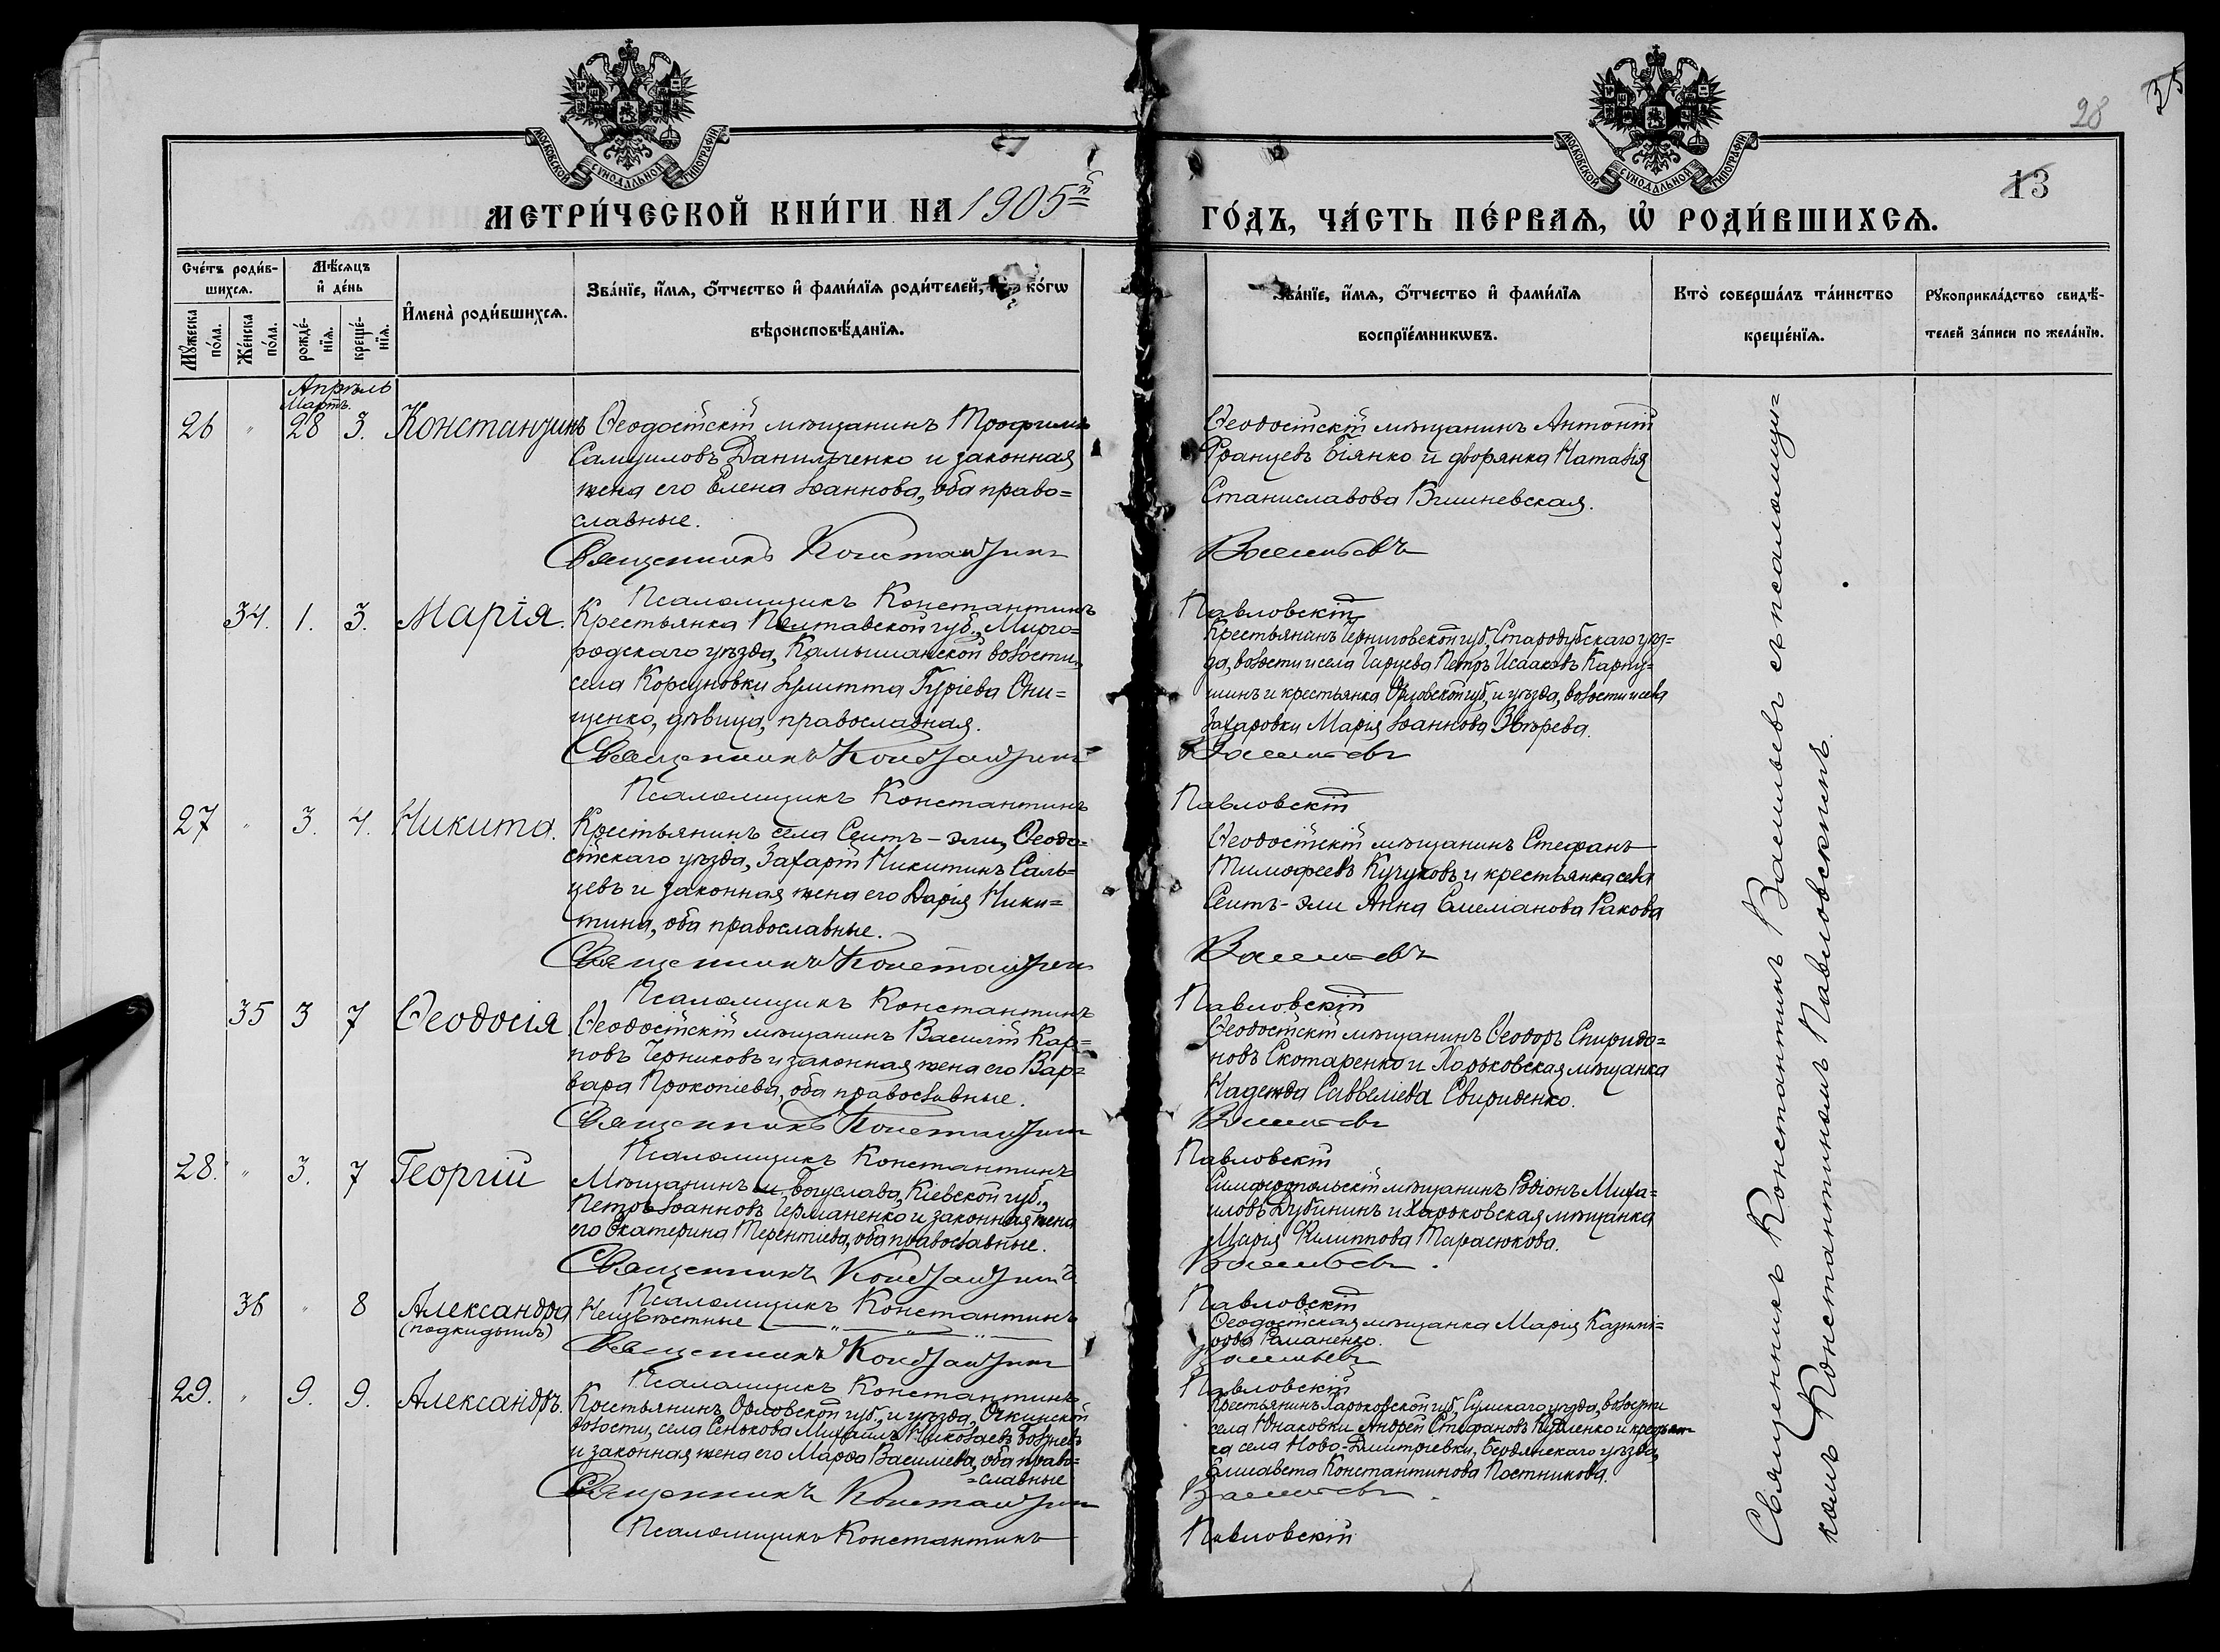 28
35
13
МОСКОВСКОЙ СѴНОДАЛЬНОЙ ТИПОГРАФІИ
МОСКОВСКОЙ СѴНОДАЛЬНОЙ ТИПОГРАФІИ
МЕТРИ́ЧЕСКОЙ КНИ́ГИ НА 1905й
ГО́ДЪ, ЧА́СТЬ ПЕ́РВАѦ, Ѡ҆ РОДИ́ВШИХСѦ.
Сче́тъ роди́в-
шихсѧ.
Мѣ́сѧцъ
и҆ де́нь
И҆мена̀ роди́вшихсѧ.
Зва́нїе, и҆́мѧ, ѻ҆́тчество и҆ фами́лїѧ роди́телей, ко́гѡ
вѣроисповѣ́данїѧ.
Мꙋ́жеска по́ла.
Же́нска по́ла.
рожде́-
нїѧ.
креще́-
нїѧ.
Зва́нїе, и҆́мѧ, ѻ҆́тчество и҆ фами́лїѧ
воспрїе́мникѡвъ.
Кто̀ соверша́лъ та́инство
креще́нїѧ.
Рꙋкоприкла́дство свидѣ́-
телей за́писи по жела́нїю.
Апрѣль
Мартъ.
26 " 28 3. Константинъ
Ѳеодосійскій мѣщанинъ Трофимъ
Самуиловъ Данильченко и законная
жена его Елена Іоаннова, оба право=
славные.
Священникъ Константинъ
Псаломщикъ Константинъ
Ѳеодосійскій мѣщанинъ Антоній
Францевъ Біянко и дворянка Наталія
Станиславова Вишневская.
Васильевъ
Павловскій
34. 1. 3. Марія.
Крестьянка Полтавской губ., Мирго=
родскаго уѣзда, Камышанской волости,
села Корсуновки Іулитта Гуріева Они=
щенко, дѣвица, православная.
Священникъ Константинъ
Псаломщикъ Константинъ
Крестьянинъ Черниговской губ., Стародубскаго уѣз=
да, волости и села Гарцева Петръ Исааковъ Карпу=
шинъ и крестьянка Орловской губ., и уѣзда, волости и села
Захаровки Марія Іоаннова Звѣрева.
Васильевъ
Павловскій
27 " 3. 4. Никита.
Крестьянинъ села Сеитъ-эли, Ѳеодо=
сійскаго уѣзда, Захарій Никитинъ Саль=
цевъ и законная жена его Дарія Ники=
тина, оба православные.
Священникъ Константинъ
Псаломщикъ Константинъ
Ѳеодосійскій мѣщанинъ Стефанъ
Тимоѳеевъ Кучуковъ и крестьянка села
Сеитъ-эли Анна Емеліанова Ракова
Васильевъ
Павловскій
35 3 7 Ѳеодосія
Ѳеодосійскій мѣщанинъ Василій Кар=
повъ Черниковъ и законная жена его Вар=
вара Прокопіева, оба православные.
Священникъ Константинъ
Псаломщикъ Константинъ
Ѳеодосійскій мѣщанинъ Ѳеодоръ Спиридо=
новъ Скотаренко и Харьковская мѣщанка
Надежда Савеліева Свириденко.
Васильевъ
Павловскій
28. " 3. 7 Георгій
Мѣщанинъ м. Богуслава, Кіевской губ.,
Петръ Іоанновъ Германенко и законная жена
его Екатерина Терентіева, оба православные.
Священникъ Константинъ
Псаломщикъ Константинъ
Симферопольскій мѣщанинъ Родіонъ Миха=
иловъ Дубининъ и Харьковская мѣщанка
Марія Филиппова Тарасюкова.
Васильевъ.
Павловскій
36 " 8 Александра
(подкидышъ)
Неизвѣстные — " — " — " —
Священникъ Константинъ
Псаломщикъ Константинъ
Ѳеодосійская мѣщанка Марія Казими=
рова Романенко.
Васильевъ
Павловскій
29. " 9. 9. Александръ.
Крестьянинъ Орловской губ., и уѣзда,
волости, села Сенькова Михаилъ Николаевъ
и законная жена его Марѳа Василіева, оба право=
=славные
Священникъ Константинъ
Псаломщикъ Константинъ
Крестьянинъ Харьковской губ., Сумскаго уѣзда, волости
села Юнаковки Андрей Стефановъ и крестьян=
ка села Ново-Дмитріевки, Бердянскаго уѣзда,
Елисавета Константинова Постникова.
Васильевъ.
Павловскій
Священникъ Константинъ Васильевъ съ псаломщи=
комъ Константиномъ Павловскимъ.